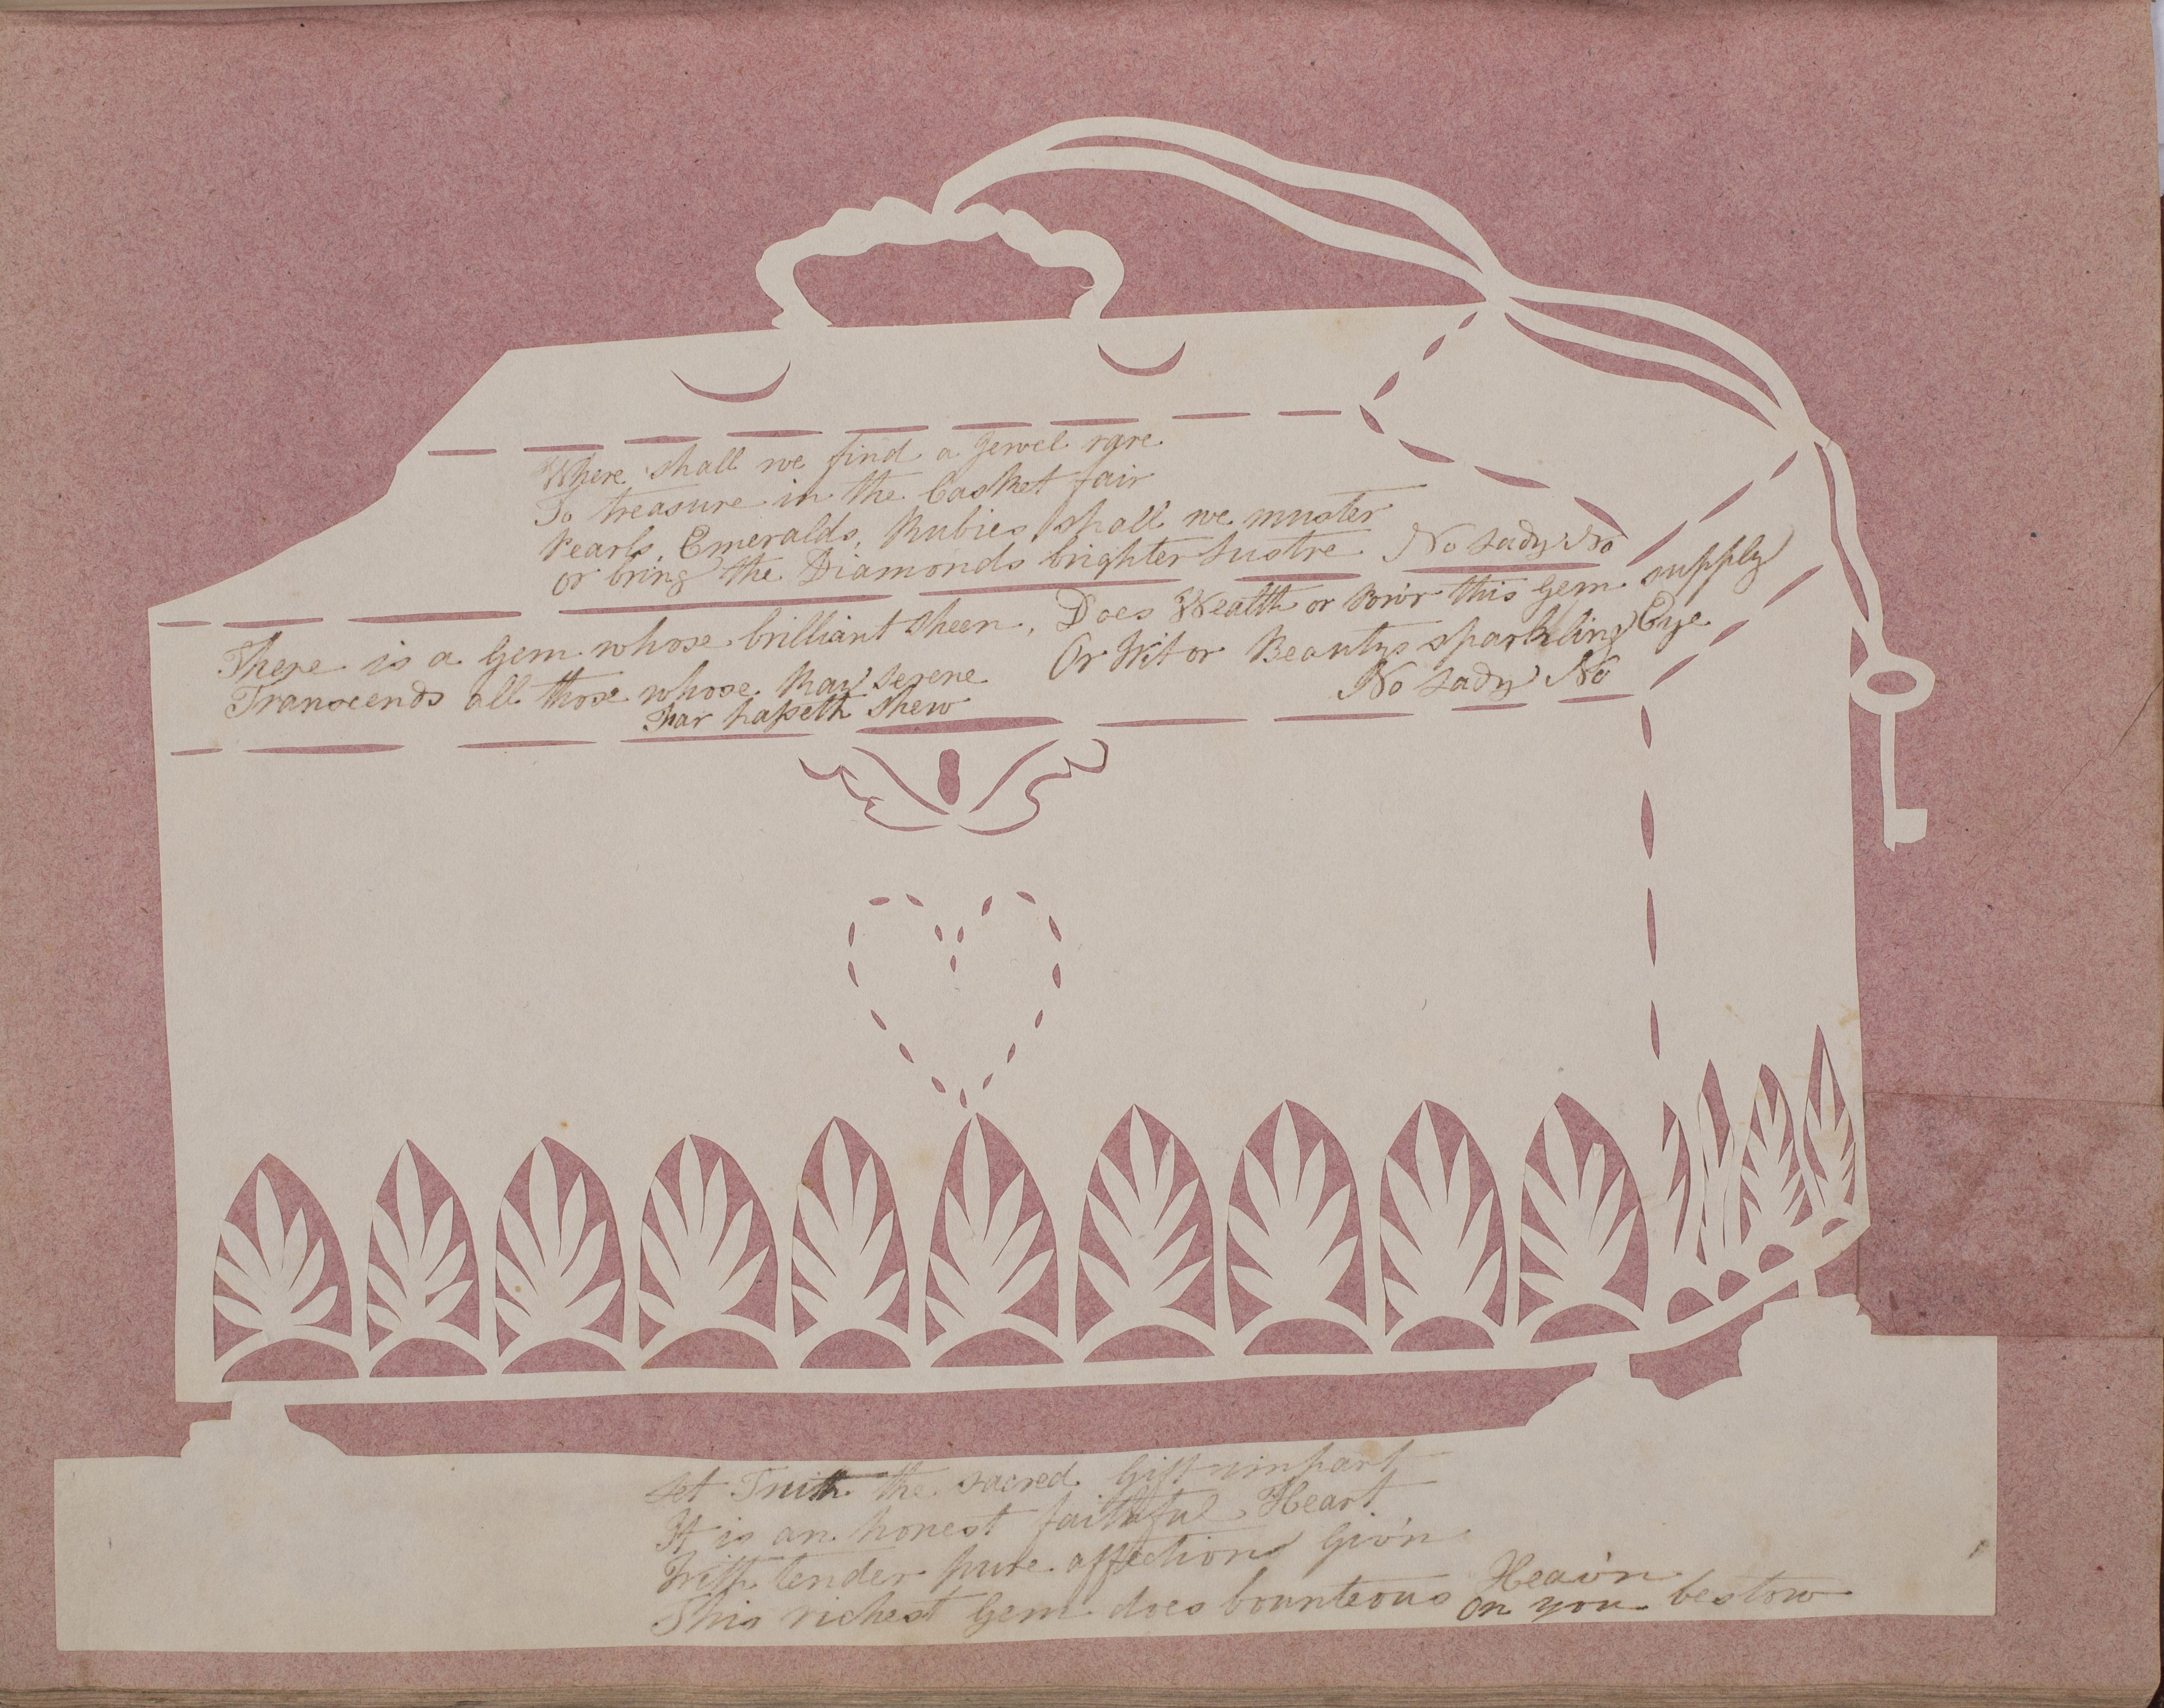 Where shall we find a Jewel rare
To treasure in the Casket fair
Pearls, Emeralds, Rubies shall we muster
or bring the Diamonds brighter Lustre No Lady No
There is a Gem whose brilliant Sheen,
Transcends all those whose Ray serene
Far passeth Shew
Does Wealth or Pow'r this Gem supply
Or Wit or Beautys sparkling Eye
No Lady No
Let Truth the sacred Gift impart
It is an honest faithful Heart
With tender pure affection Giv'n
This richest Gem does bounteous Heav'n
On you bestow